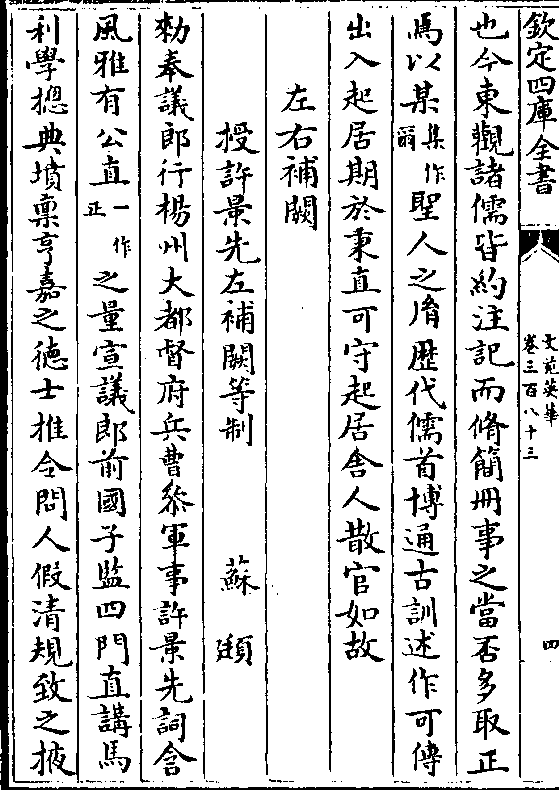 欽定四庫全書
文苑英華
卷三百八十三
四
也今東觀諸儒皆約注記而脩簡冊事之當否多取正
焉以某集作翦聖人之㣧歴代儒首博通古訓述作可傳
出入起居期於秉直可守起居舍人散官如故
左右補闕
授許景先左補闕等制 蘇頲
勑奉議郎行楊州大都督府兵曹叅軍事許景先詞含
風雅有公直一作正之量宣議郎前國子監四門直講馬
利學揔典墳稟亨嘉之徳士推令問人假清規致之掖